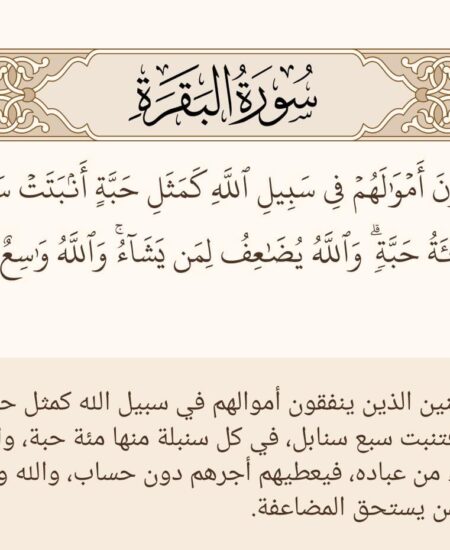 سُورَةُ البَقَرَةِ
أَمۡوَٰلَهُمۡ فِي سَبِيلِ ٱللَّهِ كَمَثَلِ حَبَّةٍ أَنۢبَتَتۡ
حَبَّةٖۗ وَٱللَّهُ يُضَٰعِفُ لِمَن يَشَآءُۚ وَٱللَّهُ وَٰسِعٌ
الذين ينفقون أموالهم في سبيل الله كمثل
سبع سنابل، في كل سنبلة منها مئة حبة،
من عباده، فيعطيهم أجرهم دون حساب، والله
يستحق المضاعفة.